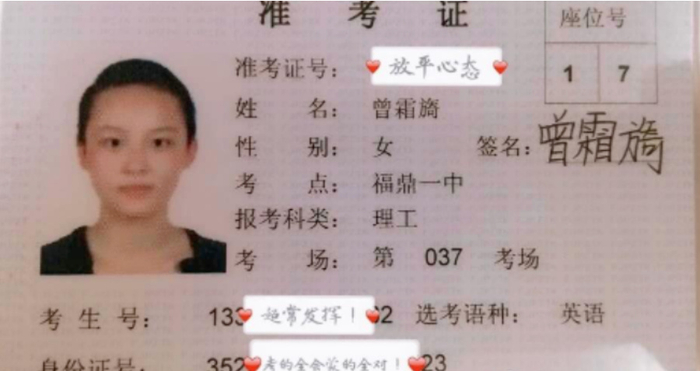 准 考 证
座位号
准考证号： 放平心态
1 7
姓 名： 曾霜旖
性 别： 女 签名： 曾霜旖
考 点： 福鼎一中
报考科类： 理工
考 场： 第 037 考场
考 生 号： 133 超常发挥！ 62 选考语种： 英语
身份证号： 352 考的全会蒙的全对！ 23